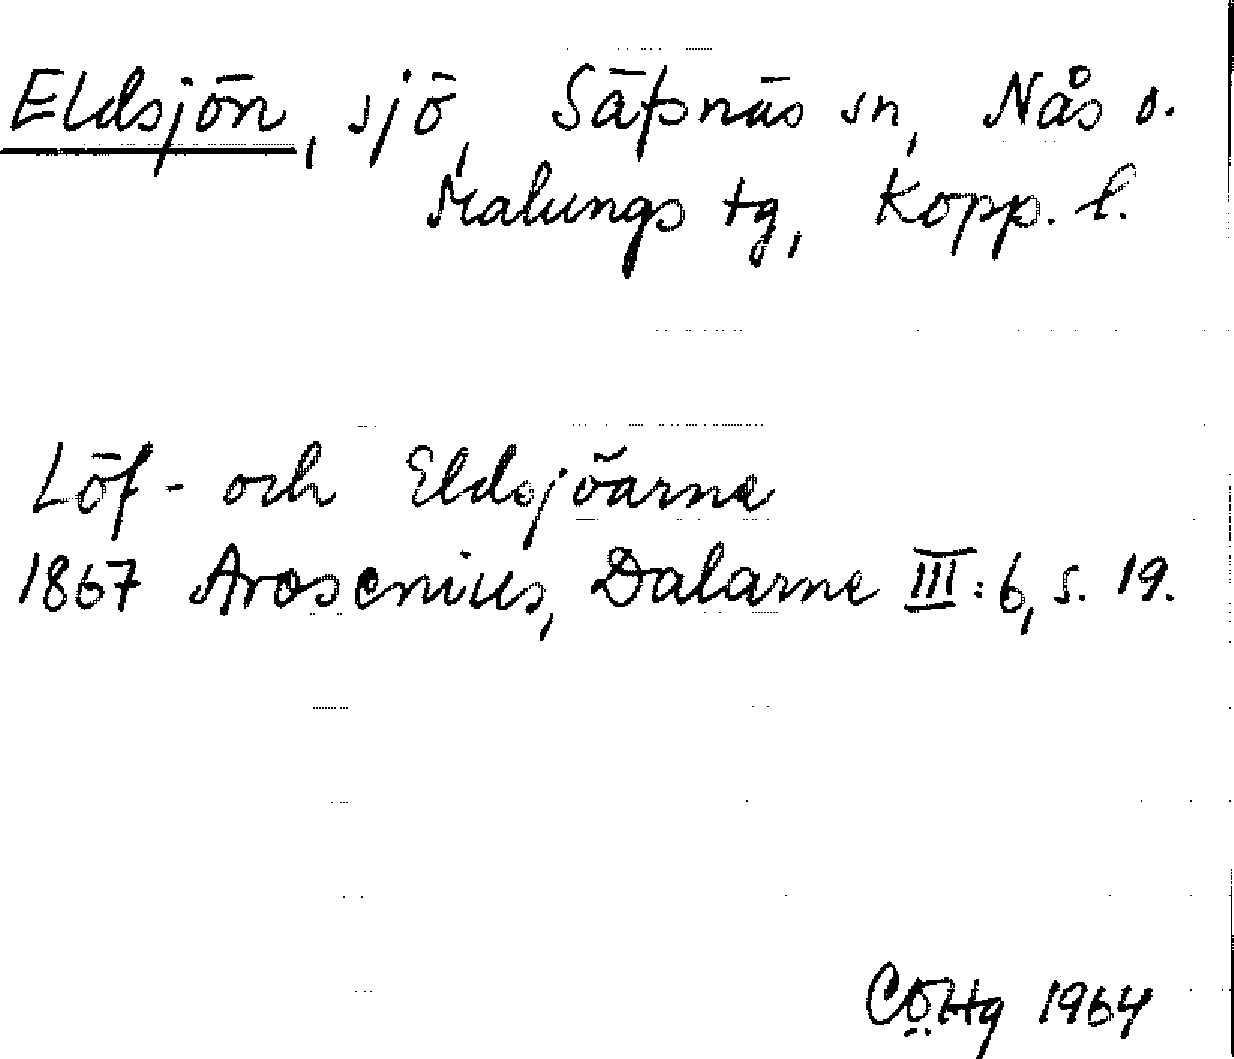 Eldsjön, sjö, Säfsnäs sn, Nås o.
Malungs tg, Kopp. l.
Löf- och Eldsjöarne
1867 Arosenius, Dalarne III:6, s. 19.
CÖHg 1964